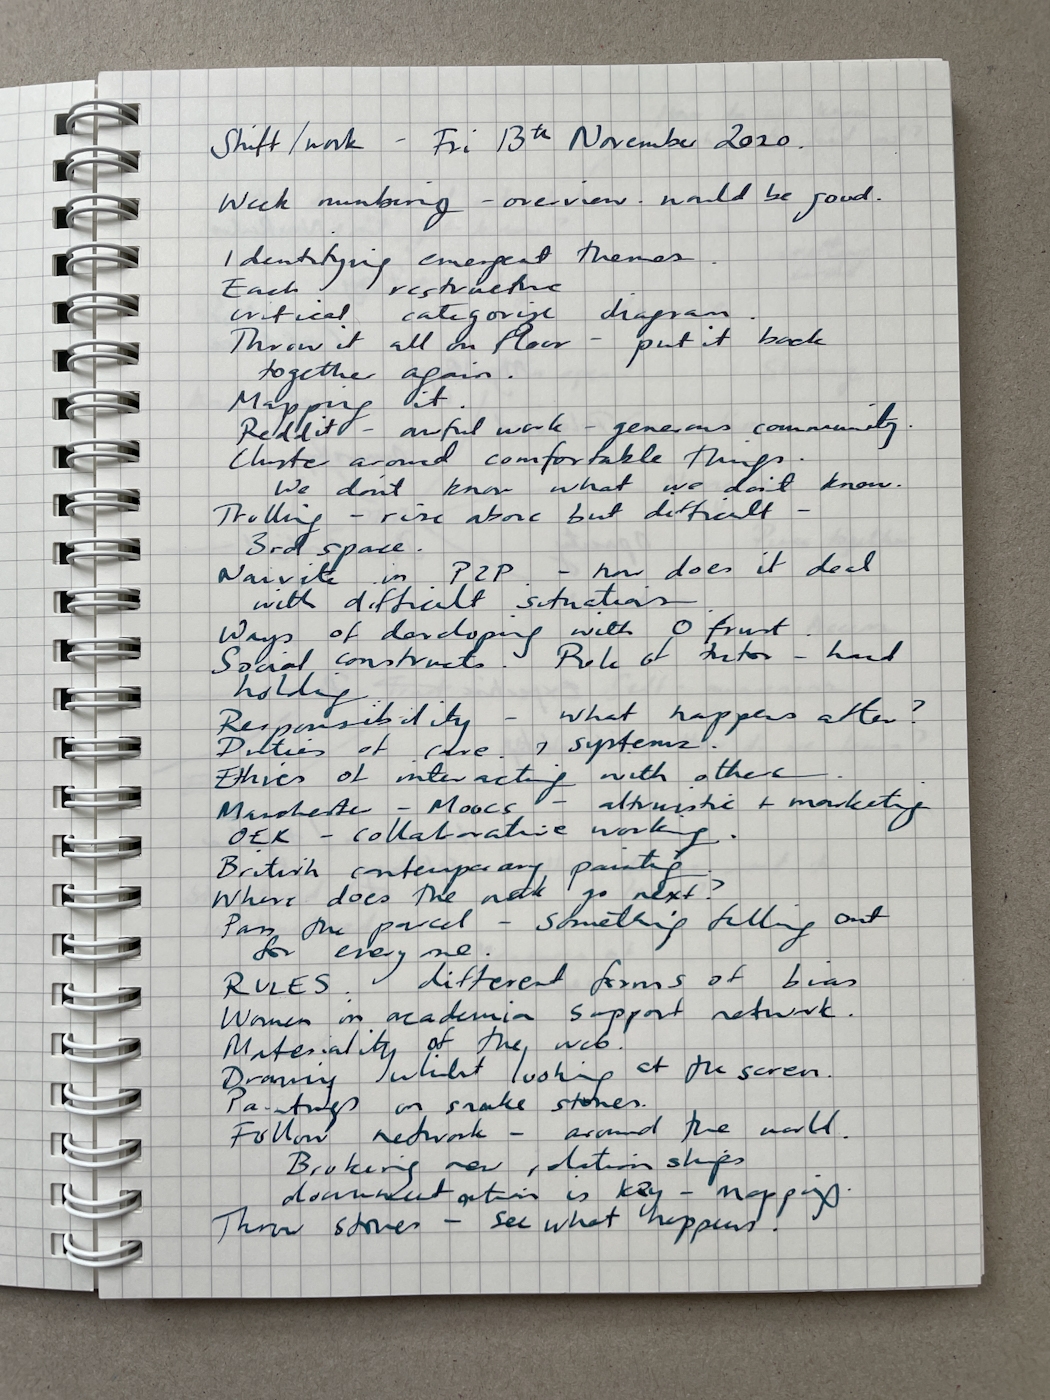 Shift/work - Fri 13th November 2020.
Week numbering - overview. would be good.
Identifying emergent themes.
Each restructure
critical categorise diagram.
Throw it all on floor - put it back
together again.
Mapping it.
Reddit - awful work - generous community.
Cluster around comfortable things.
We don't know what we don't know.
Trolling - rise above but difficult -
3rd space.
Naivite in P2P - how does it deal
with difficult situations
Ways of developing with 0 trust.
Social constructs. Role of tutor - hand
holding
Responsibility - what happens after?
Duties of care. > systems.
Ethics of interacting with others.
Manchester - Moocs - altruistic + marketing
OEK - collaborative working.
British contemporary painting.
Where does the next?
Pass the parcel - something falling out
for everyone.
RULES. different forms of bias
Women in academia support network.
Materiality of the web.
Drawing whilst looking at the screen.
Paintings on snake stones.
Follow network - around the world.
Brokering new relationships
documentation is key - mapping.
Throw stones - see what happens.